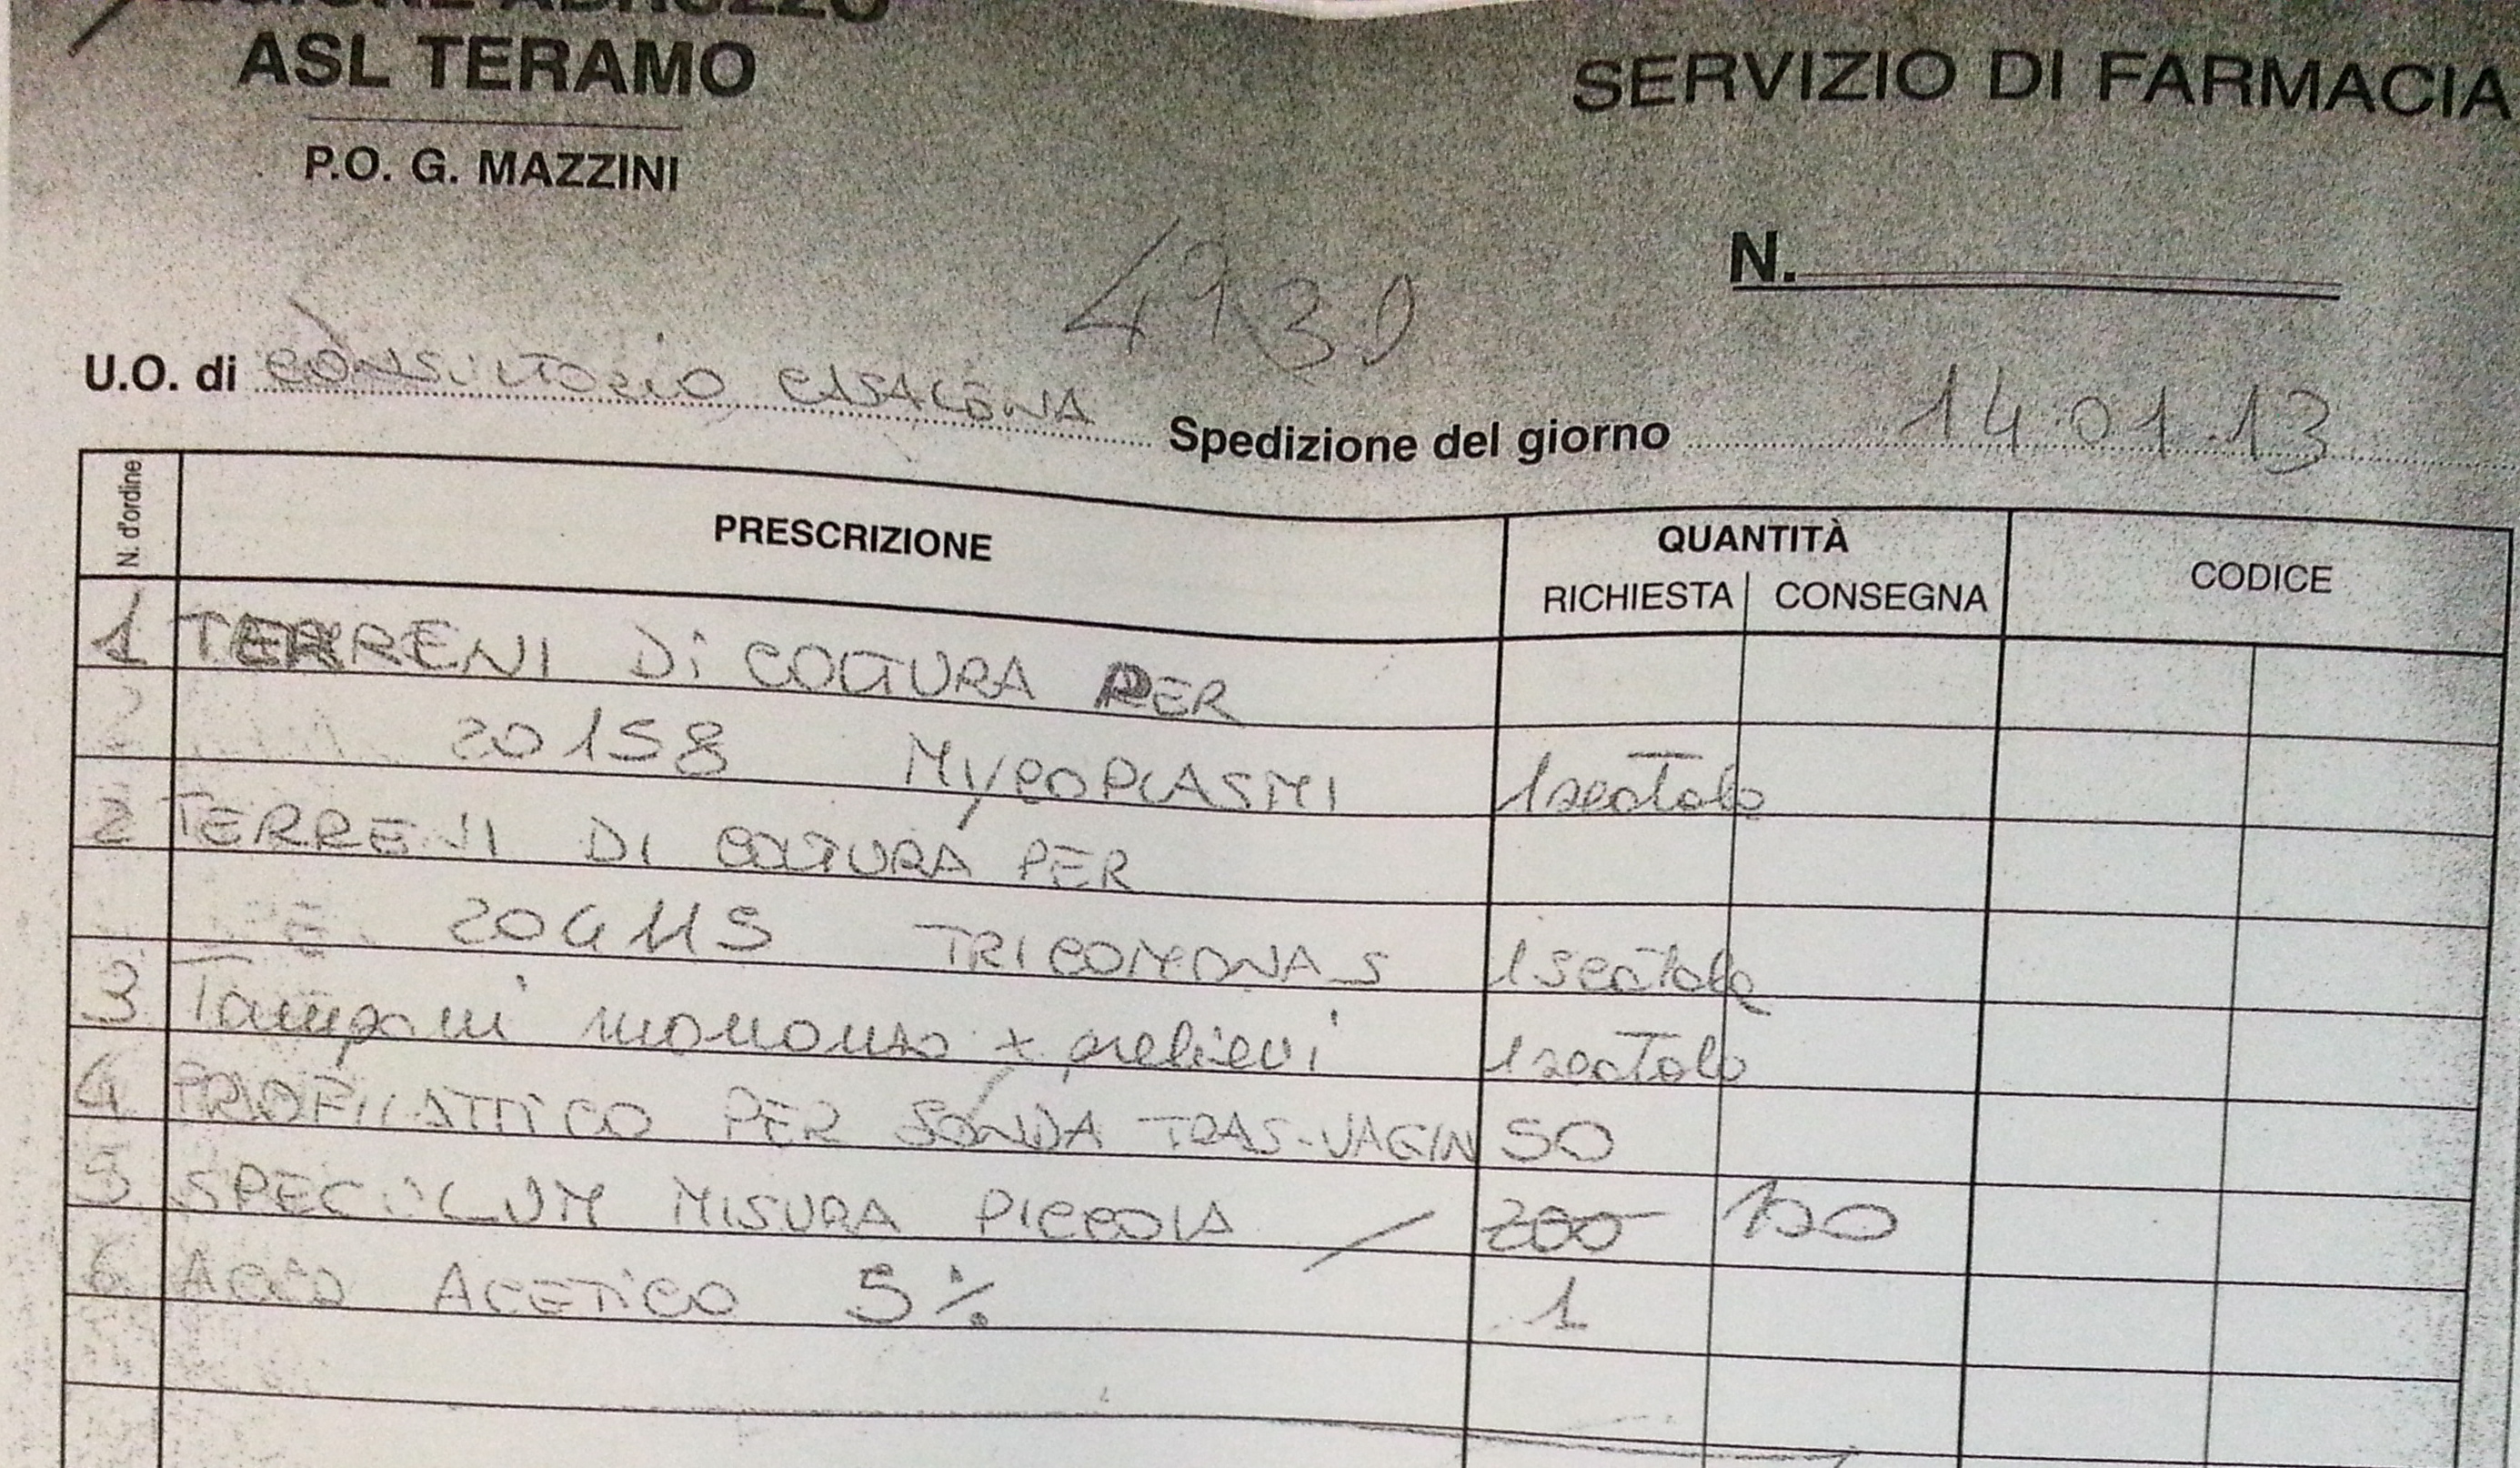 REGIONE ABRUZZO
ASL TERAMO
P.O. G. MAZZINI
SERVIZIO DI FARMACIA
N.
U.O. di CONSULTORIO CASALENA
Spedizione del giorno 14.01.13
N. d'ordine PRESCRIZIONE QUANTITÀ CODICE
RICHIESTA CONSEGNA
1 TERRENI Di COLTURA PER
2 20158 MYCOPLASMI 1 scatola
2 TERRENI DI COLTURA PER
TRICOMONAS 1 scatola
3 Tamponi monouso x prelievi 1 scatola
4 PROFILATTICO PER SONDA TRAS-VAGIN 50
5 SPECULUM MISURA PICCOLA / 200
6 ACIDO ACETICO 5% 1